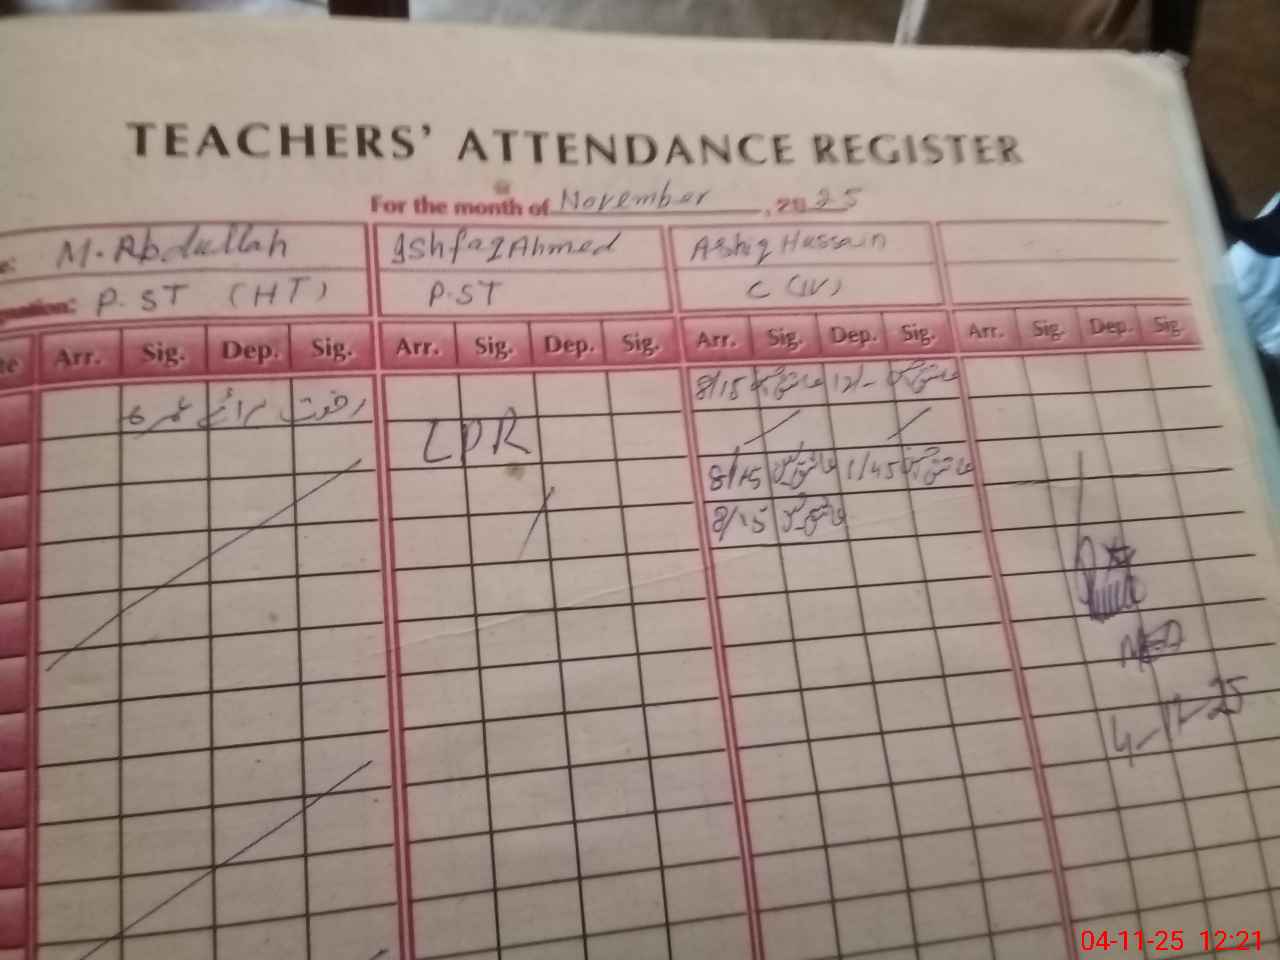 TEACHERS' ATTENDANCE REGISTER
For the month of November, 2025
M. Abdullah Ishfaq Ahmed Ashiq Hussain
P.ST (HT) P.ST C (IV)
Arr. Sig. Dep. Sig. Arr. Sig. Dep. Sig. Arr. Sig. Dep. Sig. Arr. Sig. Dep. Sig.
رخصت برائے عمرہ 8/15 عاشق حسین 12/- عاشق حسین
LPR
8/15 عاشق حسین 1/45 عاشق حسین
8/15 عاشق حسین
4-11-25
04-11-25 12:21